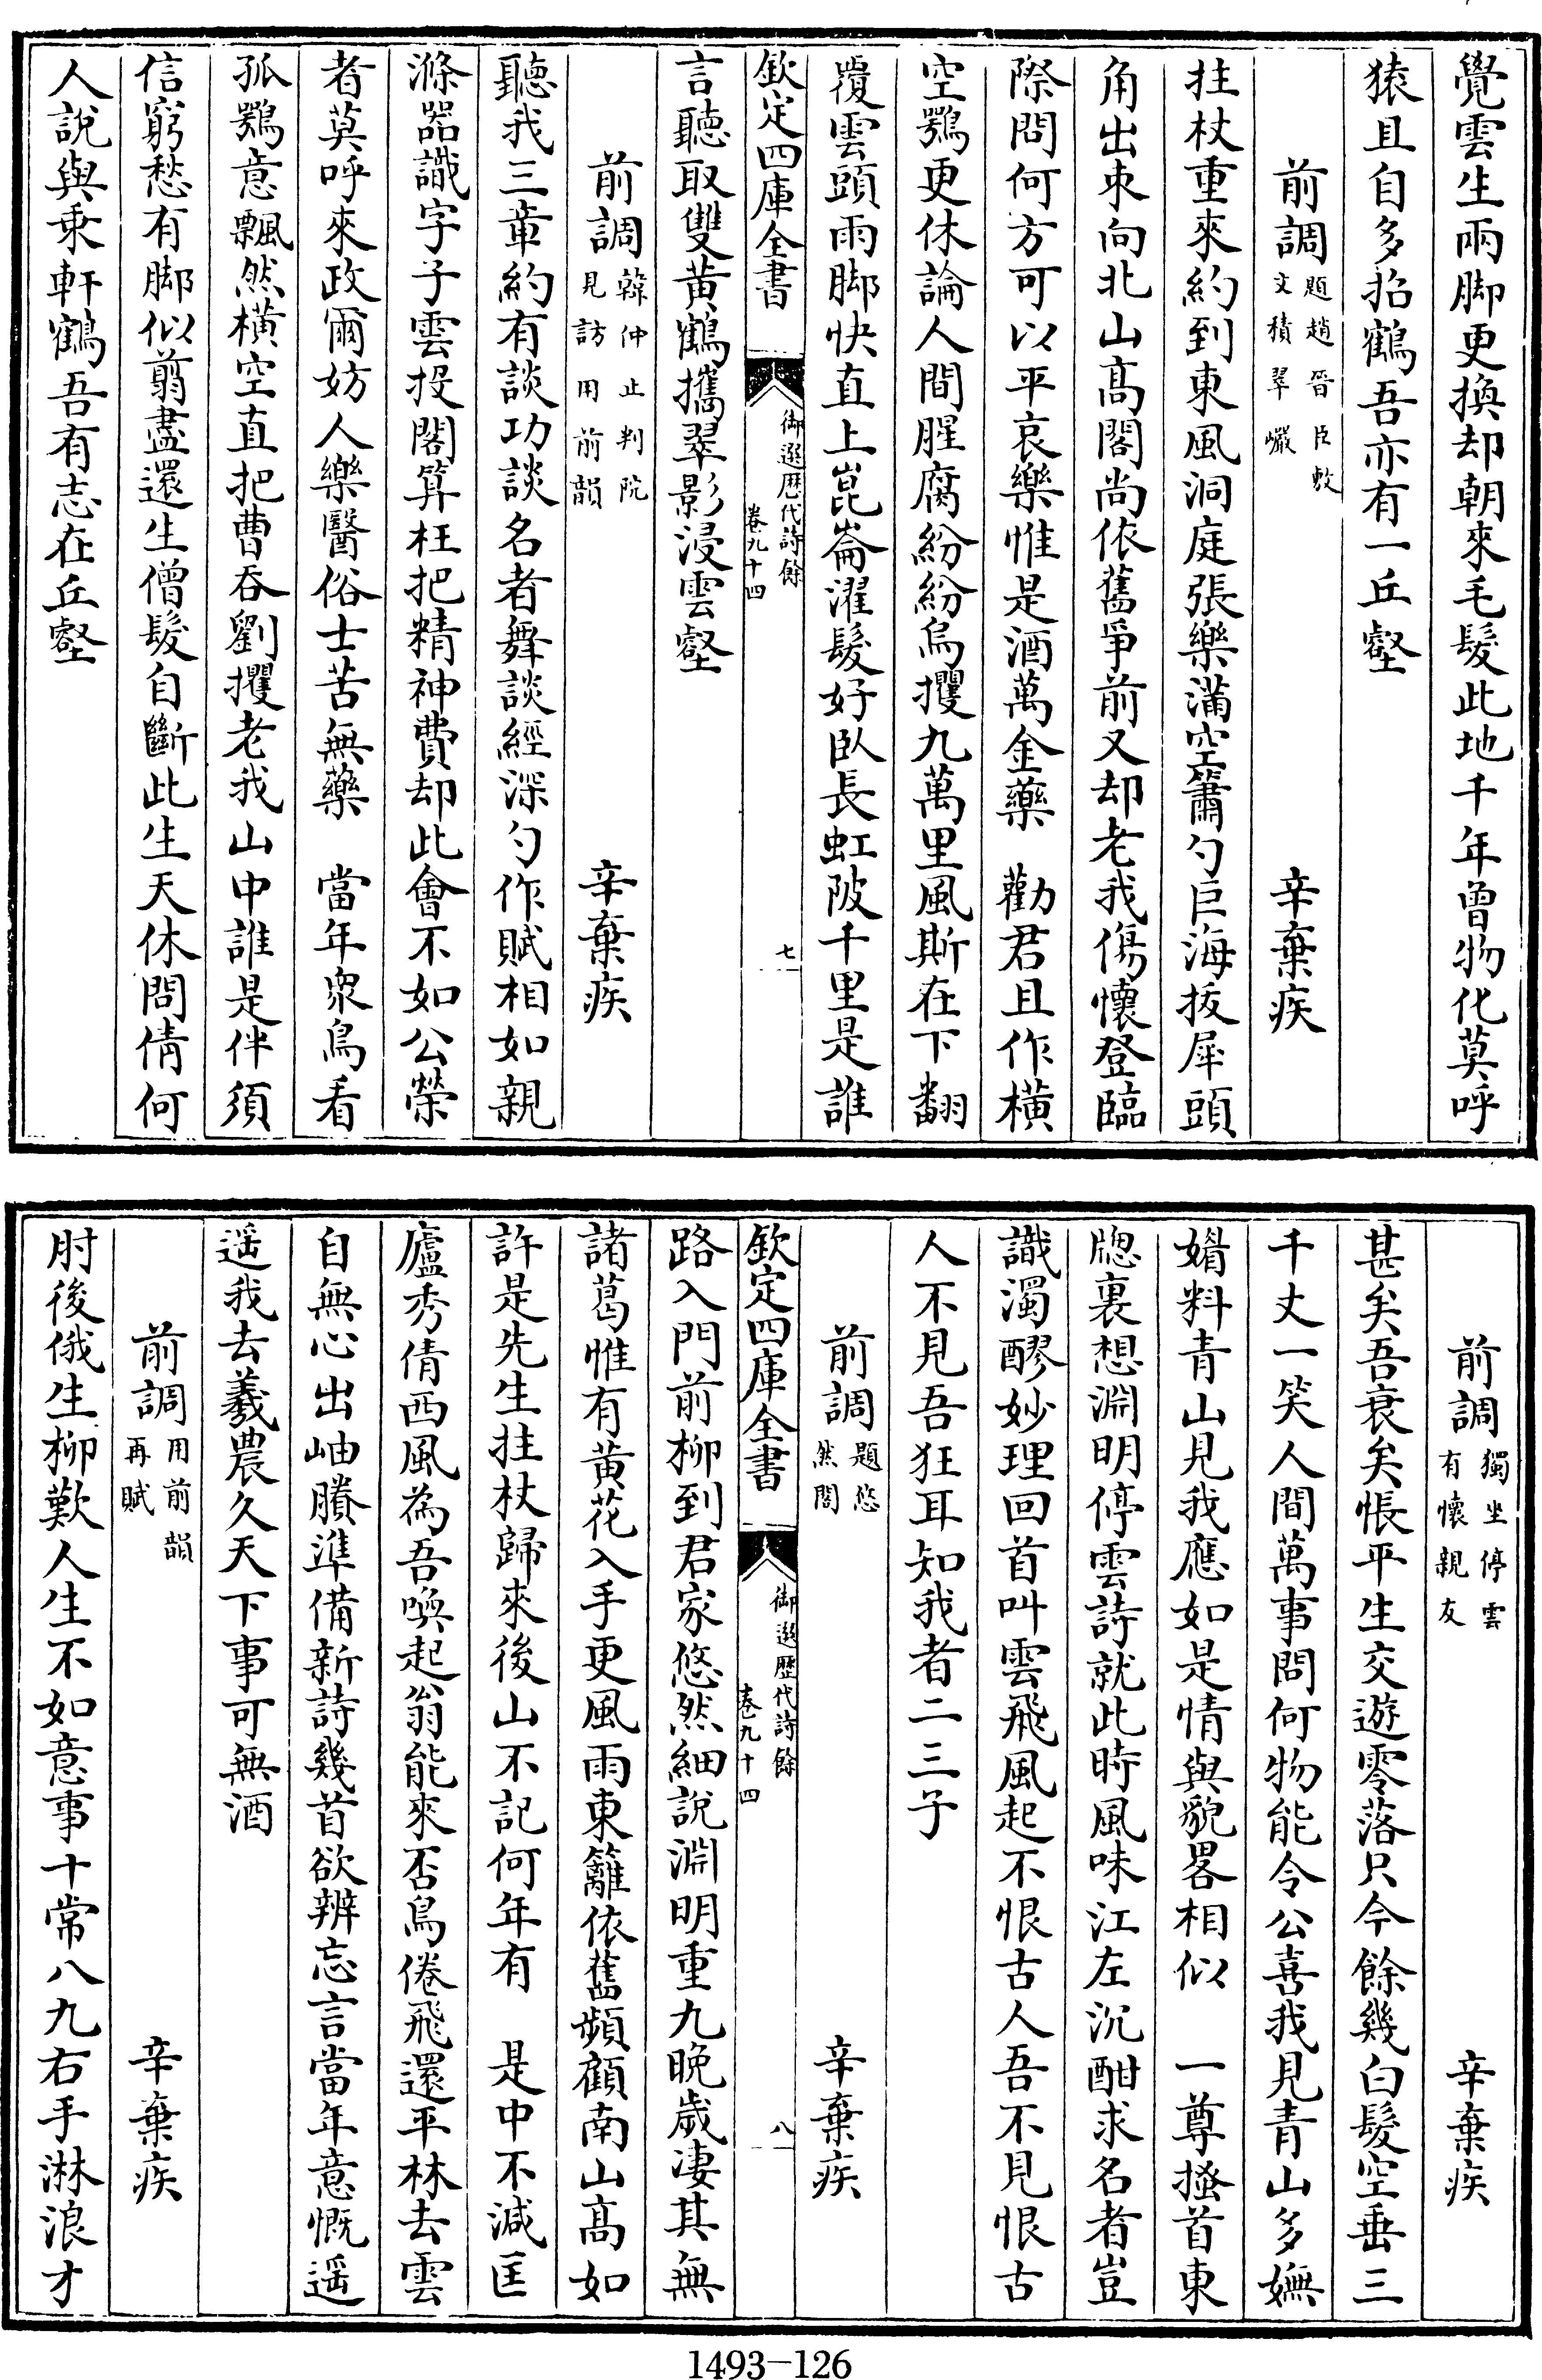 覺雲生兩脚更換却朝來毛髮此地千年曾物化莫呼
猿且自多招鶴吾亦有一丘壑
前調題趙晉臣敷文積翠巖 辛棄疾
拄杖重來約到東風洞庭張樂滿空簫勺巨海拔犀頭
角出東向北山髙閣尚依舊爭前又却老我傷懷登臨
際問何方可以平哀樂惟是酒萬金藥 勸君且作橫
空鶚更休論人間腥腐紛紛烏攫九萬里風斯在下翻
覆雲頭雨脚快直上崑崙濯髮好卧長虹陂千里是誰
欽定四庫全書 御選歴代詩餘 卷九十四 七
言聽取雙黄鶴攜翠影浸雲壑
前調韓仲止判院見訪用前韻 辛棄疾
聽我三章約有談功談名者舞談經深勺作賦相如親
滌器識字子雲投閣算枉把精神費却此會不如公榮
者莫呼來政爾妨人樂醫俗士苦無藥 當年衆鳥看
孤鶚意飄然橫空直把曹吞劉攫老我山中誰是伴須
信窮愁有脚似翦盡還生僧髮自斷此生天休問倩何
人說與乘軒鶴吾有志在丘壑
前調獨坐停雲有懷親友 辛棄疾
甚矣吾衰矣悵平生交遊零落只今餘幾白髮空垂三
千丈一笑人間萬事問何物能令公喜我見青山多嫵
媚料青山見我應如是情與貌畧相似 一尊搔首東
牎裏想淵明停雲詩就此時風味江左沉酣求名者豈
識濁醪妙理回首叫雲飛風起不恨古人吾不見恨古
人不見吾狂耳知我者二三子
前調題悠然閣 辛棄疾
欽定四庫全書 御選歴代詩餘 卷九十四 八
路入門前柳到君家悠然細說淵明重九晚歲凄其無
諸葛惟有黄花入手更風雨東籬依舊頻顧南山髙如
許是先生拄杖歸來後山不記何年有 是中不減匡
廬秀倩西風為吾喚起翁能來否鳥倦飛還平林去雲
自無心出岫賸準備新詩幾首欲辨忘言當年意慨遥
遥我去羲農久天下事可無酒
前調用前韻再賦 辛棄疾
肘後俄生柳歎人生不如意事十常八九右手淋浪才
1493—126